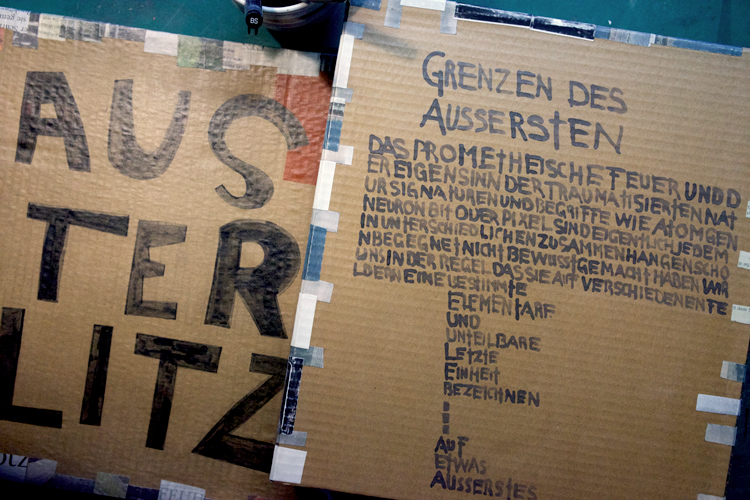 AUS
TER
LITZ
GRENZEN DES
ÄUSSERSTEN
DAS PROMETHEISCHE FEUER UND D
ER EIGENSINN DER TRAUMATISIERTEN NAT
UR SIGNATUREN UND BEGRIFFE WIE ATOM GEN
NEURON BIT ODER PIXEL SIND EIGENTLICH JEDEM
IN UNTERSCHIEDLICHEN ZUSAMMENHANGEN SCHO
N BEGEGNET NICHT BEWUSST GEMACHT HABEN WIR
UNS IN DER REGEL DAS SIE AUF VERSCHIEDENEN FE
LDERN EINE BESTIMMTE
ELEMENTARE
UND
UNTEILBARE
LETZTE
EINHEIT
BEZEICHNEN
AUF
ETWAS
ÄUSSERSTES
BS